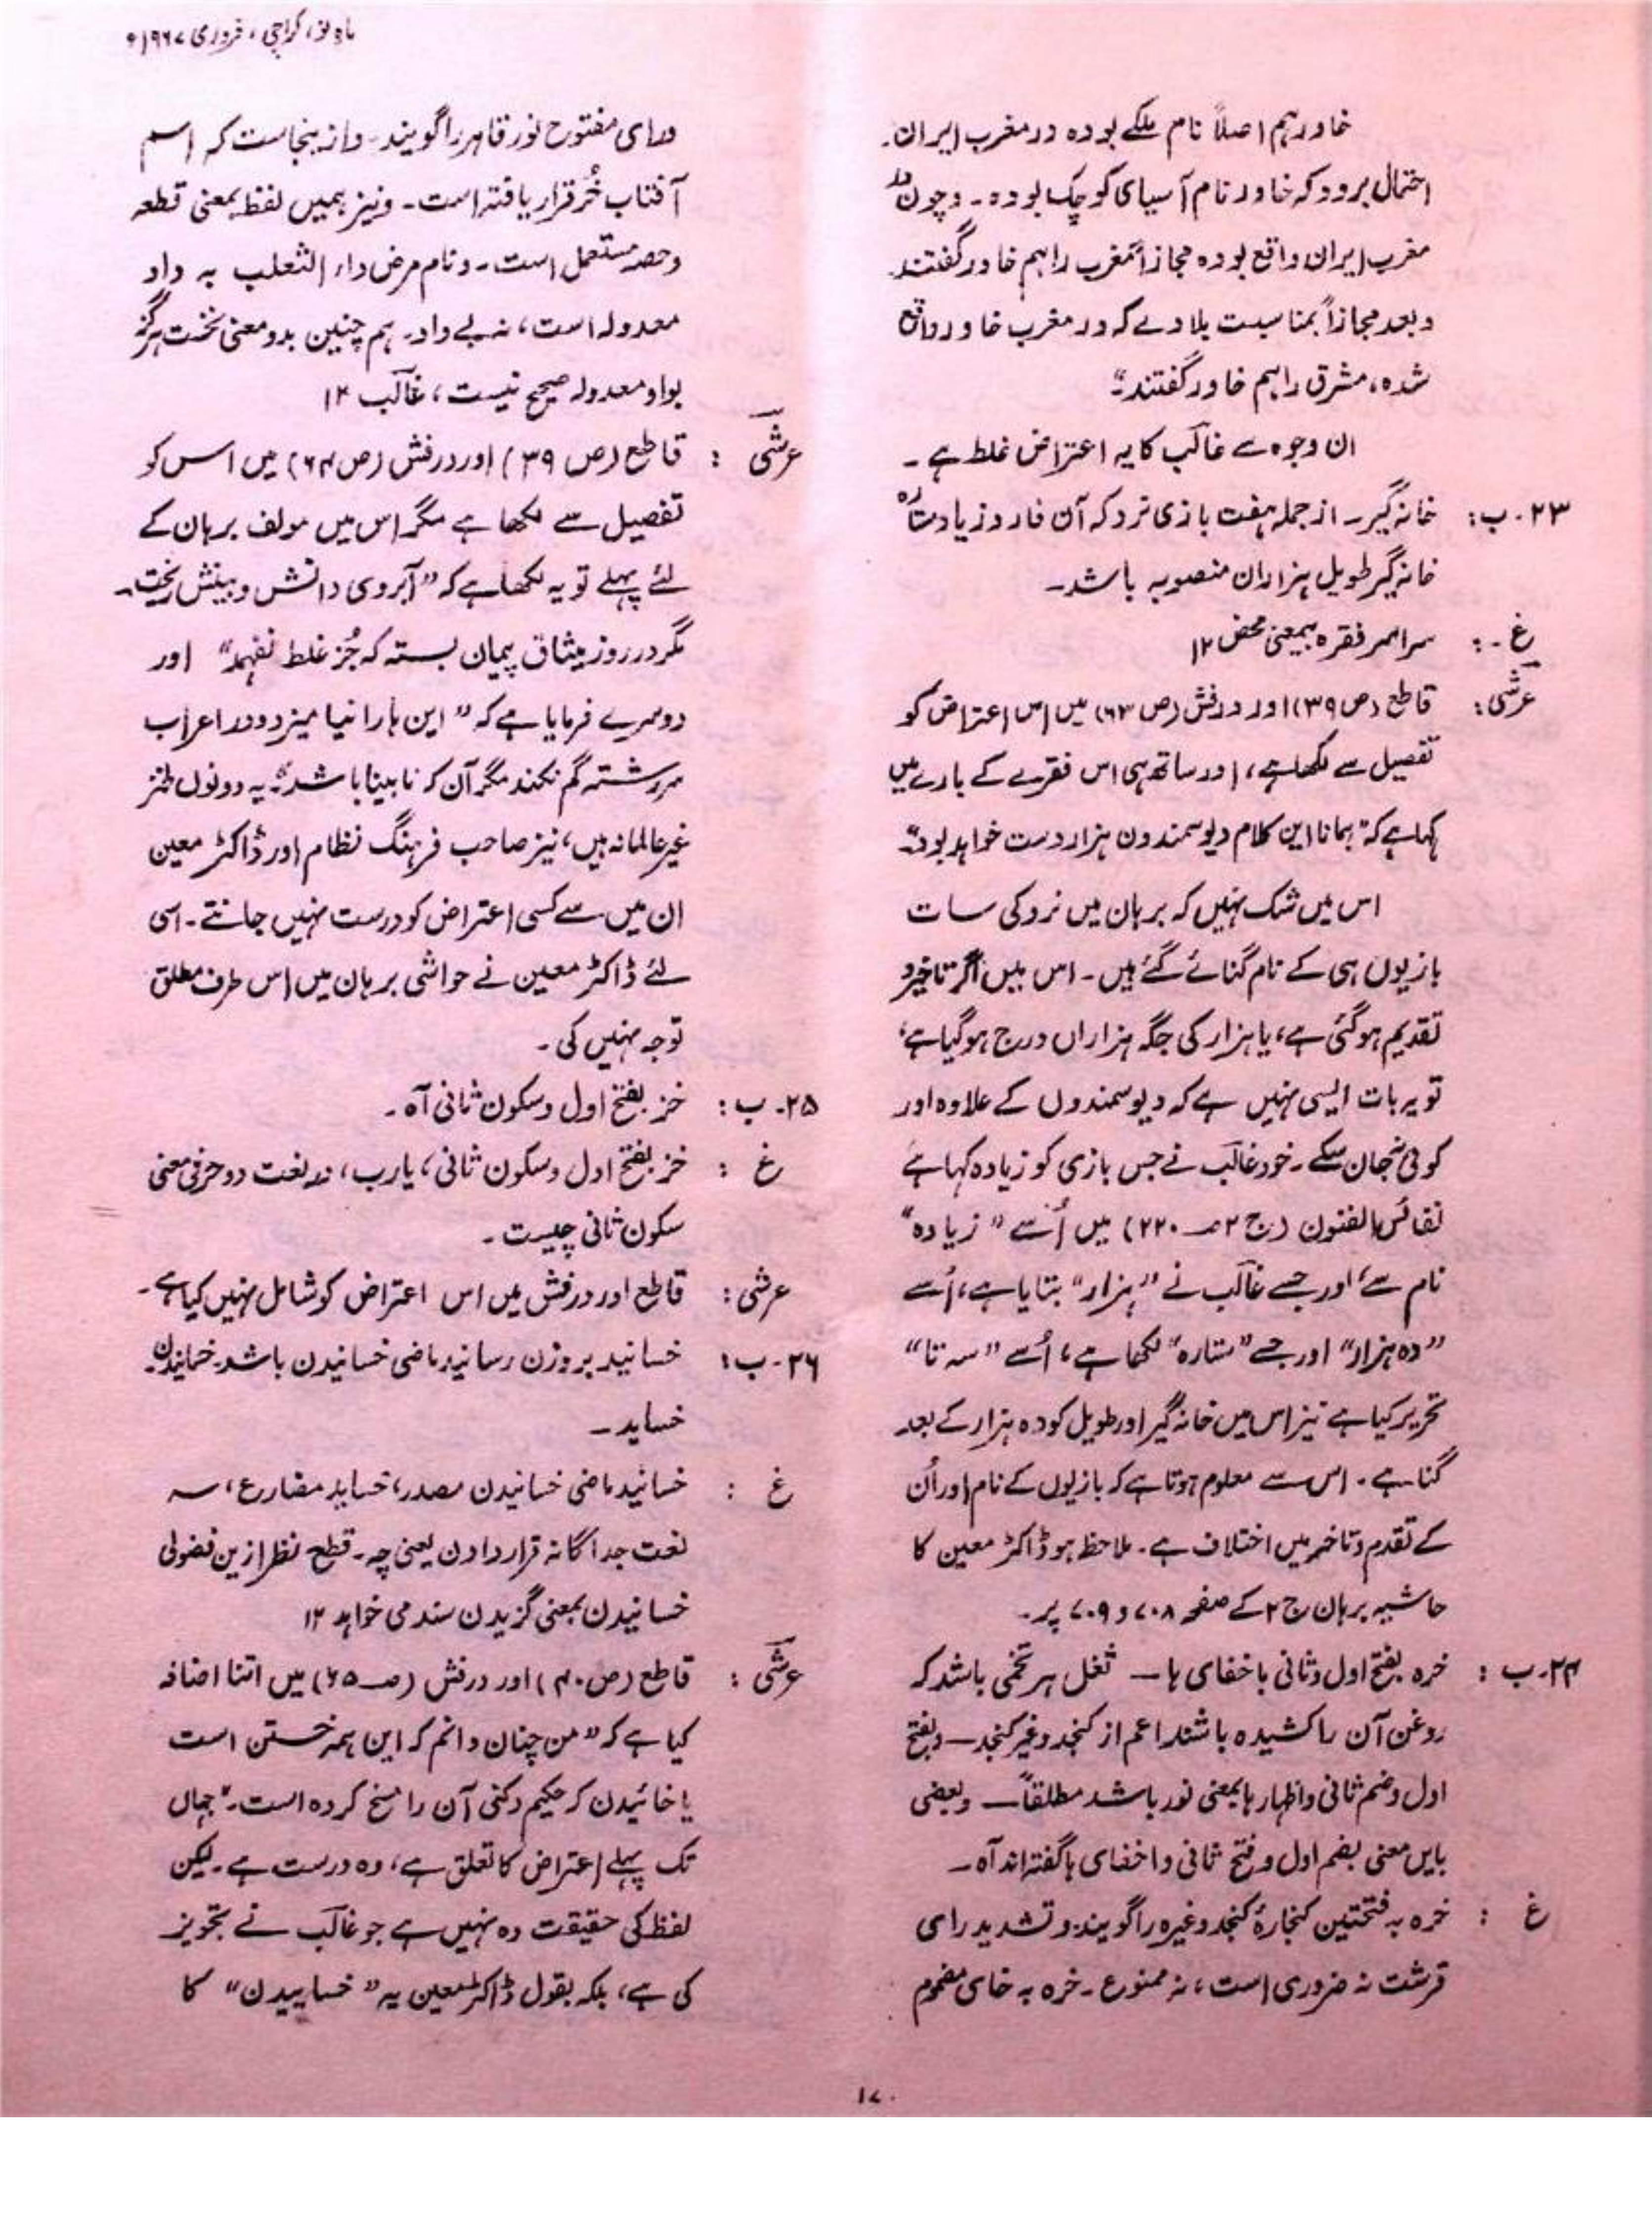 ماہِ نو، کراچی، فروری ۱۹۶۷ء
خاور ہم اصلاً نام ملکے بودہ در مغرب ایران۔
احتمال برود کہ خاور نام آسیای کوچک بودہ۔ وچون در
مغرب ایران واقع بودہ مجازاً مغرب را ہم خاور گفتند۔
وبعد مجازاً بمناسبت بلادے کہ در مغرب خاور واقع
شدہ، مشرق را ہم خاور گفتند۔"
ان وجوہ سے غالب کا یہ اعتراض غلط ہے۔
۲۳۔ ب: خانہ گیر۔ از جملہ ہفت بازی نرد کہ آن فارد زیاد ستارہ
خانہ گیر طویل ہزاران منصوبہ باشد۔
غ۔: سراسر فقرہ بیمعنی محض ۱۲
عرشی: قاطع (ص ۳۹) اور درفش (ص ۶۳) میں اس اعتراض کو
تفصیل سے لکھا ہے، اور ساتھ ہی اس فقرے کے بارے میں
کہا ہے کہ "ہمانا این کلام دیوسمندون ہزار دست خواہد بود"۔
اس میں شک نہیں کہ برہان میں نرد کی سات
بازیوں ہی کے نام گنائے گئے ہیں۔ اس میں اگر تاخیر و
تقدیم ہوگئی ہے، یا ہزار کی جگہ ہزاراں درج ہوگیا ہے،
تو یہ بات ایسی نہیں ہے کہ دیوسمندوں کے علاوہ اور
کوئی نہ جان سکے۔ خود غالب نے جس بازی کو زیادہ کہا ہے
نفائس الفنون (ج ۲ صـ ۲۲۰) میں اُسے "زیادہ"
نام سے، اور جسے غالب نے "ہزار" بتایا ہے، اُسے
"دہ ہزار" اور جسے "ستارہ" لکھا ہے، اُسے "سہ تا"
تحریر کیا ہے نیز اس میں خانہ گیر اور طویل کو دہ ہزار کے بعد
گنا ہے۔ اس سے معلوم ہوتا ہے کہ بازیوں کے نام اور اُن
کے تقدم وتاخر میں اختلاف ہے۔ ملاحظہ ہو ڈاکٹر معین کا
حاشیہ برہان ج ۲ کے صفحہ ۷۰۸ و ۷۰۹ پر۔
۲۴۔ ب: خرہ بفتح اول وثانی باخفای ہا — ثفل ہر تخمی باشد کہ
روغن آن را کشیدہ باشند اعم از کنجد وغیر کنجد — وبفتح
اول وضم ثانی واظہار ہا بمعنی نور باشد مطلقاً — وبعضی
بایں معنی بضم اول وفتح ثانی واخفای ہا گفتہ اند آہ —
غ: خرہ بہ فتحتین کنجارۂ کنجد وغیرہ را گویند۔ وتشدید رای
قرشت نہ ضروری است، نہ ممنوع۔ خرہ بہ خای مضموم
ورای مفتوح نور قاہر را گویند۔ واز ینجاست کہ اسم
آفتاب خُر قرار یافتہ است۔ ونیز ہمیں لفظ بمعنی قطعہ
وحصہ مستعمل است۔ ونام مرض داء الثعلب بہ واو
معدولہ است، نہ بے واو۔ ہم چنین بدو معنی نخست ہرگز
بواو معدولہ صحیح نیست، غالب ۱۲
عرشی: قاطع (ص ۳۹) اور درفش (ص ۶۴) میں اس کو
تفصیل سے لکھا ہے مگر اس میں مولف برہان کے
لئے پہلے تو یہ لکھا ہے کہ "آبروی دانش وبینش ریخت۔
مگر در روز میثاق پیمان بستہ کہ جُز غلط نفہمد" اور
دوسرے فرمایا ہے کہ "این ہا را نیامیزد ودر اعراب
سررشتہ گم نکند مگر آن کہ نابینا باشد"۔ یہ دونوں طنز
غیر عالمانہ ہیں، نیز صاحب فرہنگ نظام اور ڈاکٹر معین
ان میں سے کسی اعتراض کو درست نہیں جانتے۔ اسی
لئے ڈاکٹر معین نے حواشی برہان میں اس طرف مطلق
توجہ نہیں کی۔
۲۵۔ ب: خز بفتح اول وسکون ثانی آہ۔
غ: خز بفتح اول وسکون ثانی، یارب، در لغت دو حرفی معنی
سکون ثانی چیست۔
عرشی: قاطع اور درفش میں اس اعتراض کو شامل نہیں کیا ہے۔
۲۶۔ ب: خسانید بر وزن رسانید ماضی خسانیدن باشد۔ خسانیدن۔
خساید۔
غ: خسانید ماضی خسانیدن مصدر، خساید مضارع، سہ
لغت جداگانہ قرار دادن یعنی چہ۔ قطع نظر ازین فضولی
خسانیدن بمعنی گزیدن سند می خواہد ۱۲
عرشی: قاطع (ص ۴۰) اور درفش (صـ ۶۵) میں اتنا اضافہ
کیا ہے کہ "من چنان دانم کہ این ہمہ خستن است
یا خائیدن کہ حکیم دکنی آن را مسخ کردہ است۔" جہاں
تک پہلے اعتراض کا تعلق ہے، وہ درست ہے۔ لیکن
لفظ کی حقیقت وہ نہیں ہے جو غالب نے تجویز
کی ہے، بلکہ بقول ڈاکٹر معین یہ "خساییدن" کا
۱۷۰